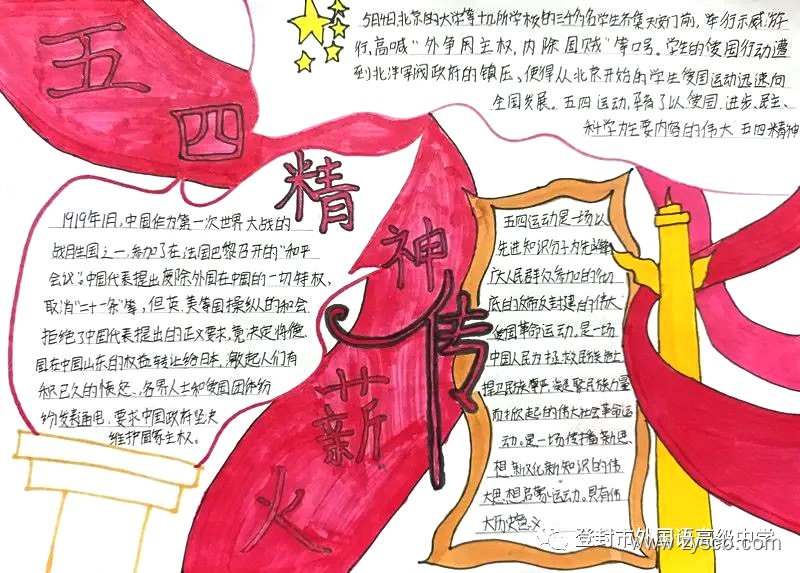 五四精神传薪火
5月4日北京的大学等十几所学校的三千多名学生齐集天安门前,举行示威游
行,高喊"外争国主权,内除国贼"等口号。学生的爱国行动遭
到北洋军阀政府的镇压、使得从北京开始的学生爱国运动迅速向
全国发展。五四运动,孕育了以爱国、进步、民主、
科学为主要内容的伟大五四精神
1919年1月,中国作为第一次世界大战的
战胜国之一,参加了在法国巴黎召开的"和平
会议"。中国代表提出废除外国在中国的一切特权,
取消"二十一条"等,但英、美等国操纵的和会
拒绝了中国代表提出的正义要求,竟决定将德
国在中国山东的权益转让给日本,激起人们有
积已久的愤怒、各界人士和爱国团体纷
纷发表通电,要求中国政府坚决
维护国家主权。
五四运动是一场以
先进知识分子为先锋
广大人民群众参加的彻
底的反帝反封建的伟大
爱国革命运动。是一场
中国人民为拯救民族危亡
捍卫民族尊严、凝聚民族力量
而掀起的伟大社会革命运
动。是一场传播新思
想新文化新知识的伟
大思想启蒙运动。具有伟
大历史意义
登封市外国语高级中学
www.zyscb.com